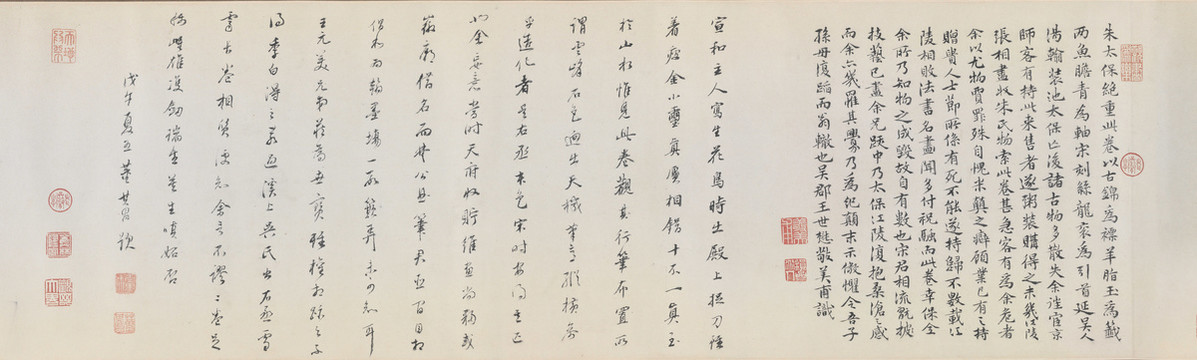 朱太保絶重此卷以古錦爲褾羊脂玉爲籤
兩魚膽青爲軸宋刻絲龍衮爲引首延吳人
湯翰裝池太保亡後諸古物多散失余往宦京
師客有持此來售者遂鬻裝購得之未幾江陵
張相盡收朱氏物索此卷甚急客有爲余危者
余以尤物賈罪殊自愧米顛之癖顧業已有之持
贈貴人士節所係有死不能遂持歸不數載江
陵相敗法書名畫聞多付祝融而此卷幸保全
余所乃知物之成毀故自有數也宋君相流翫
技藝已盡余兄跋中乃太保江陵復抱桑滄之感
而余亦幾罹其釁乃爲紀顛末示儆懼令吾子
孫毋復蹈而翁轍也吳郡王世懋敬美甫識
宣和主人寫生花鳥時出殿上捉刀雖
著瘦金小璽真贋相錯十不一真至
於山水惟見此卷觀其行筆布置所
謂雲峰石色迥出天機筆意縱橫參
乎造化者是右丞本色宋時安得其匹
也余妄意當時天府收貯維畫尚夥或
徽廟借名而楚公曲筆君臣間自相
倡和而翰墨場一段簸弄未可知耳
王元美兄弟藏爲世寶雖權相跡之不
得季白得之若遇溪上吳氏出右丞雪
霽長卷相質便知余言不謬二卷足
稱雌雄雙劍瑞生莫生嗔妬否
戊午夏五董其昌題